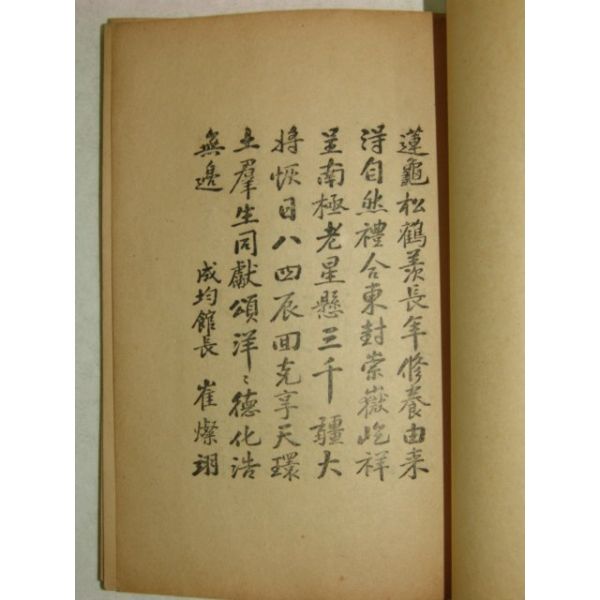 蓮龜松鶴羨長年修養由来
得自然禮合東封崇嶽屹祥
呈南極老星懸三千疆大
将恢日八四辰回克享天環
土羣生同獻頌洋〻德化浩
無邊
成均館長 崔燦翊